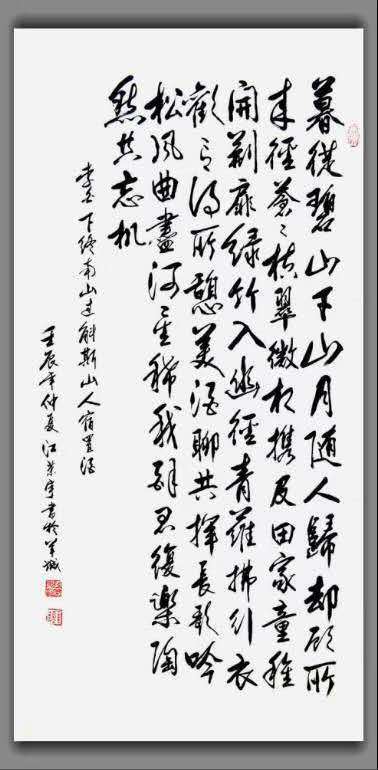 暮從碧山下山月隨人歸却顧所
来徑蒼々横翠微相携及田家童稚
開荆扉緑竹入幽徑青蘿拂行衣
歡言得所憩美酒聊共揮長歌吟
松風曲盡河星稀我醉君復樂陶
然共忘机
李白下终南山过斛斯山人宿置酒
壬辰年仲夏江宇書於羊城